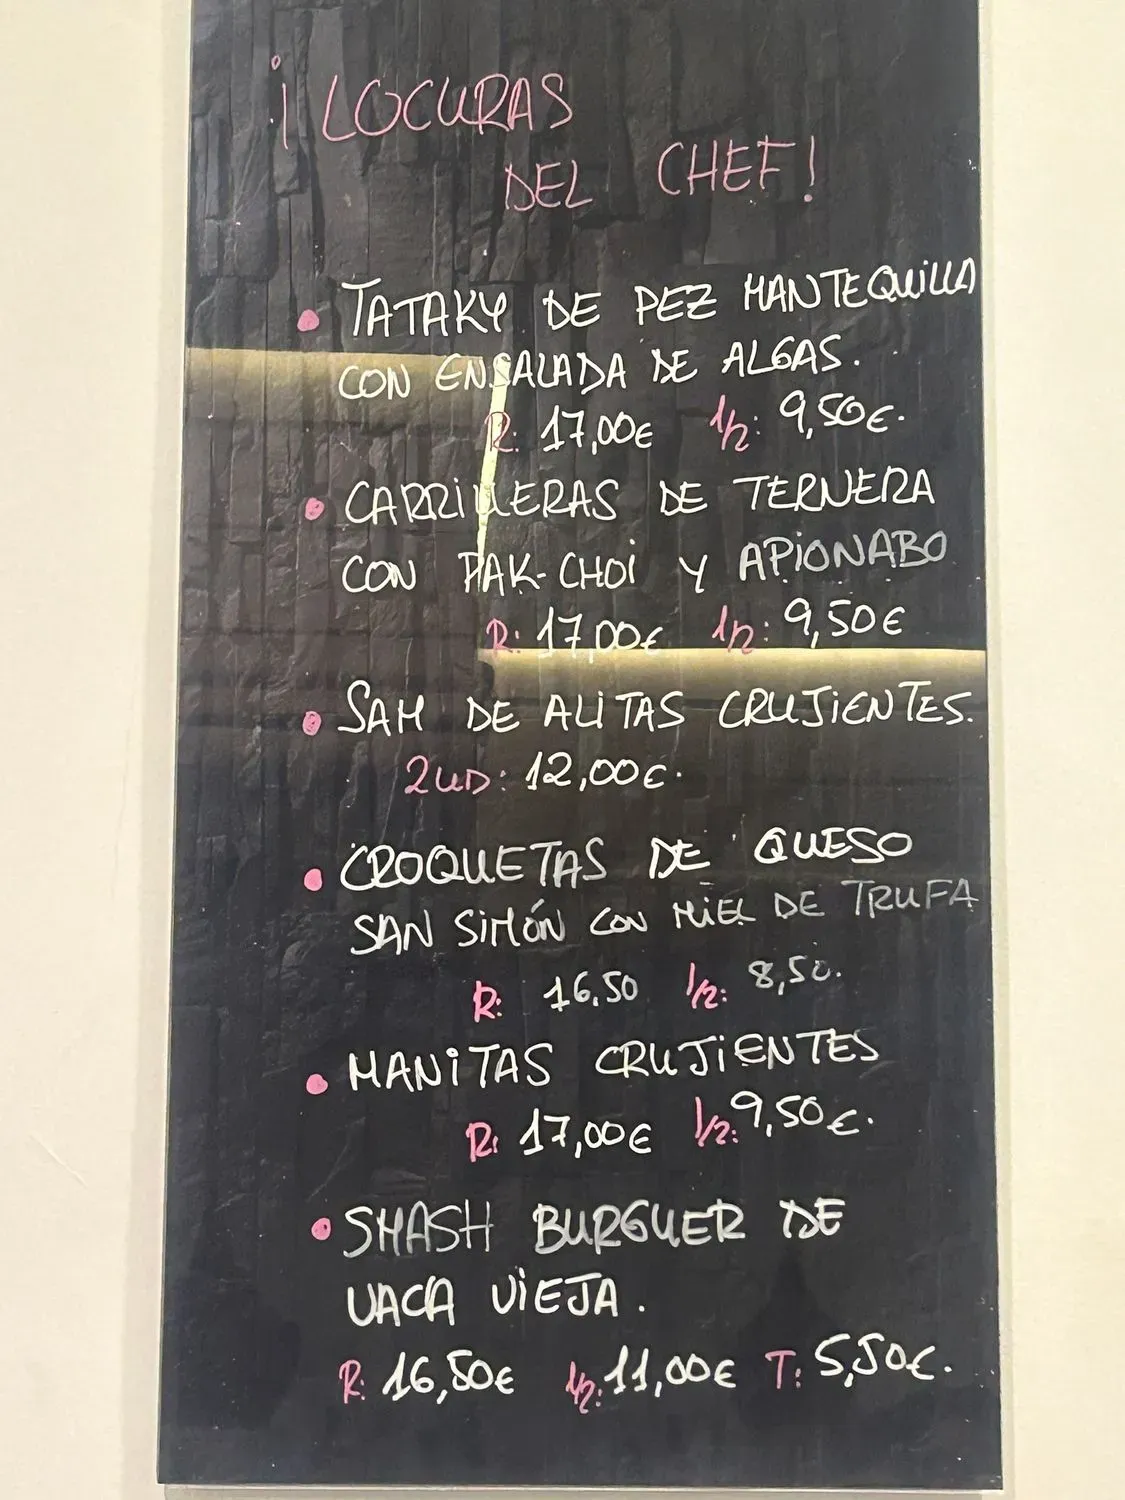 ¡LOCURAS
DEL CHEF!
TATAKY DE PEZ MANTEQUILLA
CON ENSALADA DE ALGAS.
R: 17,00€ 1/2: 9,50€.
CARRILLERAS DE TERNERA
CON PAK-CHOI Y APIONABO
R: 17,00€ 1/2: 9,50€
SAM DE ALITAS CRUJIENTES.
2UD: 12,00€.
CROQUETAS DE QUESO
SAN SIMÓN CON MIEL DE TRUFA
R: 16,50 1/2: 8,50.
MANITAS CRUJIENTES
R: 17,00€ 1/2: 9,50€.
SMASH BURGUER DE
VACA VIEJA.
R: 16,50€ 1/2: 11,00€ T: 5,50€.